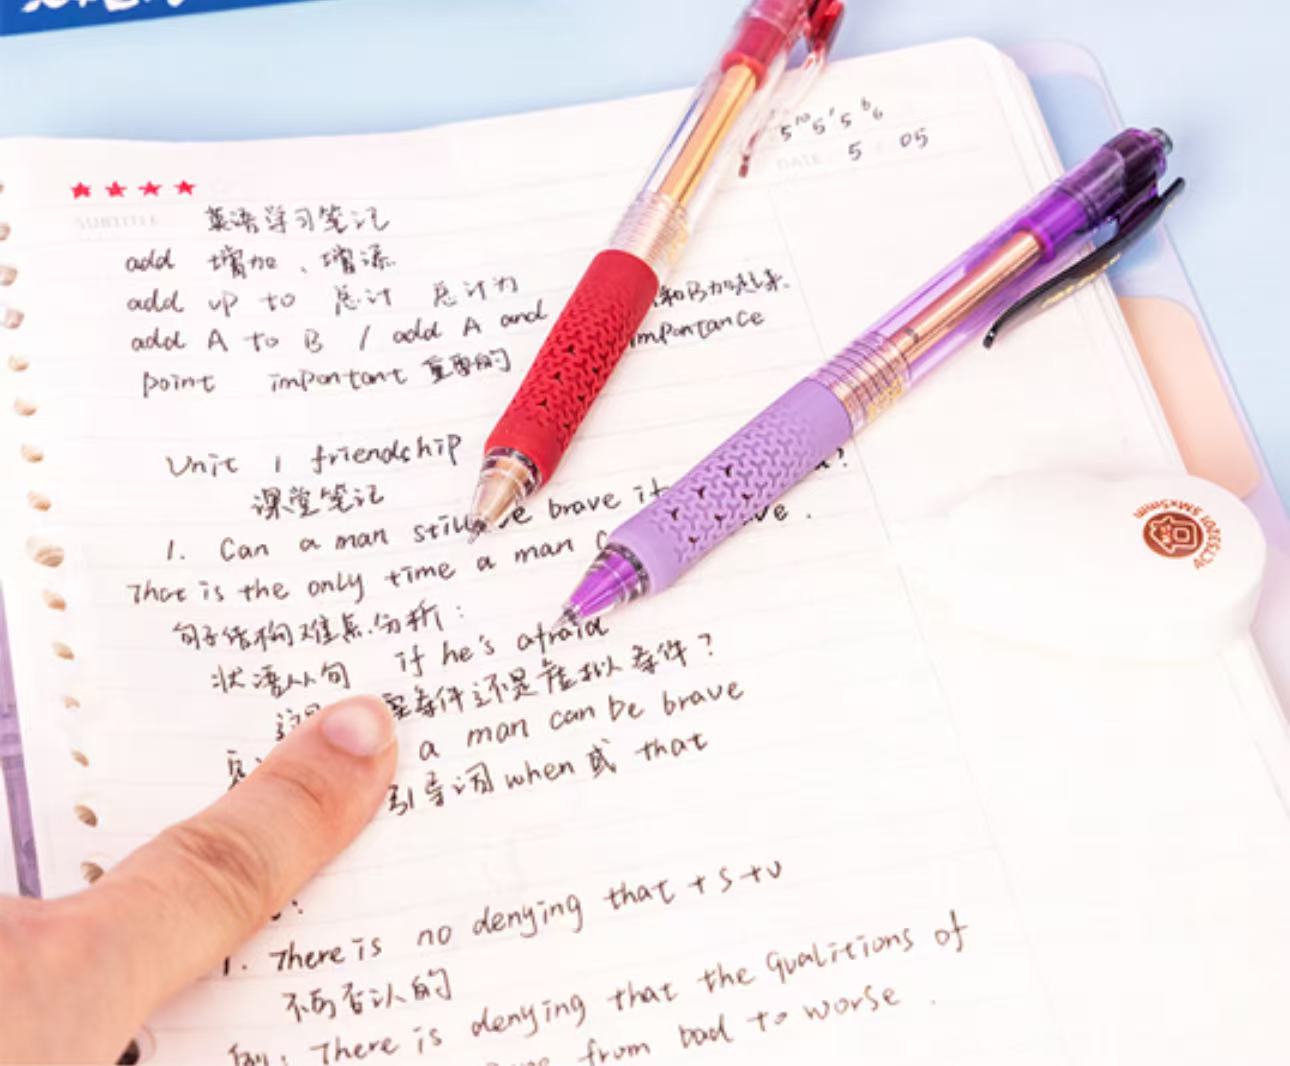 5 10 5 1 5 6 6
DATE: 5 05
SUBTITLE 英语学习笔记
add 增加、增添
add up to 总计 总计为
add A to B / add A and 和B加起来
point important 重要的 importance
Unit 1 friendship
课堂笔记
1. Can a man still be brave if ?
That is the only time a man .
句子结构难点分析:
状语从句 if he's afraid
条件还是虚拟条件?
a man can be brave
引导词 when 或 that
1. There is no denying that + s + v
不可否认的
例: There is denying that the qualitions of
from bad to worse.
ACTS207 5M×5mm